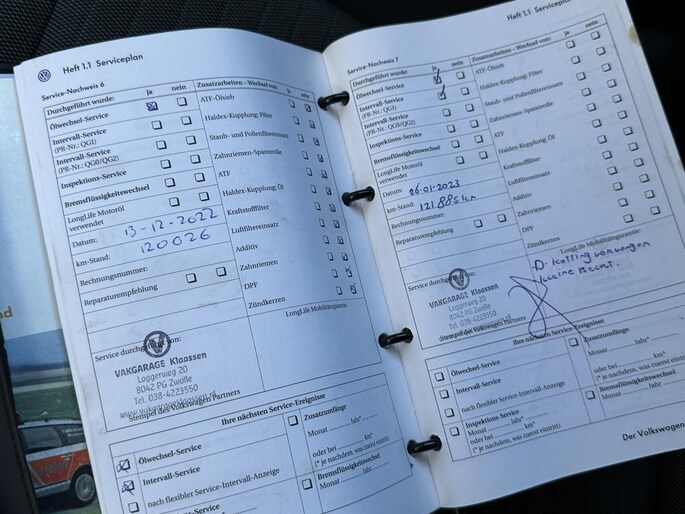 Heft 1.1 Serviceplan
Service-Nachweis 6
Durchgeführt wurde: ja nein Zusatzarbeiten – Wechsel von: ja nein
Ölwechsel-Service
Intervall-Service
(PR-Nr.: QG1)
Intervall-Service
(PR-Nr.: QG0/QG2)
Inspektions-Service
Bremsflüssigkeitswechsel
LongLife Motoröl
verwendet
Datum: 13-12-2022
km-Stand: 120026
Rechnungsnummer:
Reparaturempfehlung
ATF-Ölsieb
Haldex-Kupplung: Filter
Staub- und Pollenfiltereinsatz
Zahnriemen-Spannrolle
ATF
Haldex-Kupplung: Öl
Kraftstofffilter
Luftfiltereinsatz
Additiv
Zahnriemen
DPF
Zündkerzen
LongLife Mobilitätsgarantie
Service durchgeführt von:
VAKGARAGE Klaassen
Loggerweg 20
8042 PG Zwolle
Tel. 038-4223550
www.vakgarageklaassen.nl
Stempel des Volkswagen Partners
Ihre nächsten Service-Ereignisse
Ölwechsel-Service
Intervall-Service
nach flexibler Service-Intervall-Anzeige
Zusatzumfänge
Monat Jahr*
oder bei km*
(* je nachdem, was zuerst eintritt)
Bremsflüssigkeitswechsel
Monat Jahr
Heft 1.1 Serviceplan
Service-Nachweis 7
Durchgeführt wurde: ja nein Zusatzarbeiten – Wechsel von: ja nein
Ölwechsel-Service
Intervall-Service
(PR-Nr.: QG1)
Intervall-Service
(PR-Nr.: QG0/QG2)
Inspektions-Service
Bremsflüssigkeitswechsel
LongLife Motoröl
verwendet
Datum: 26-01-2023
km-Stand: 121885 km
Rechnungsnummer:
Reparaturempfehlung
ATF-Ölsieb
Haldex-Kupplung: Filter
Staub- und Pollenfiltereinsatz
Zahnriemen-Spannrolle
ATF
Haldex-Kupplung: Öl
Kraftstofffilter
Luftfiltereinsatz
Additiv
Zahnriemen
DPF
Zündkerzen
LongLife Mobilitätsgarantie:
D-ketting vervangen
kleine beurt.
Service durchgeführt von:
VAKGARAGE Klaassen
Loggerweg 20
8042 PG Zwolle
Tel. 038-4223550
Stempel des Volkswagen Partners
Ihre nächsten Service-Ereignisse
Ölwechsel-Service
Intervall-Service
nach flexibler Service-Intervall-Anzeige
Inspektions-Service
Monat Jahr*
oder bei km*
(* je nachdem, was zuerst eintritt)
Zusatzumfänge
Monat Jahr*
oder bei km*
(* je nachdem, was zuerst eintritt)
Bremsflüssigkeitswechsel
Monat Jahr
Der Volkswagen